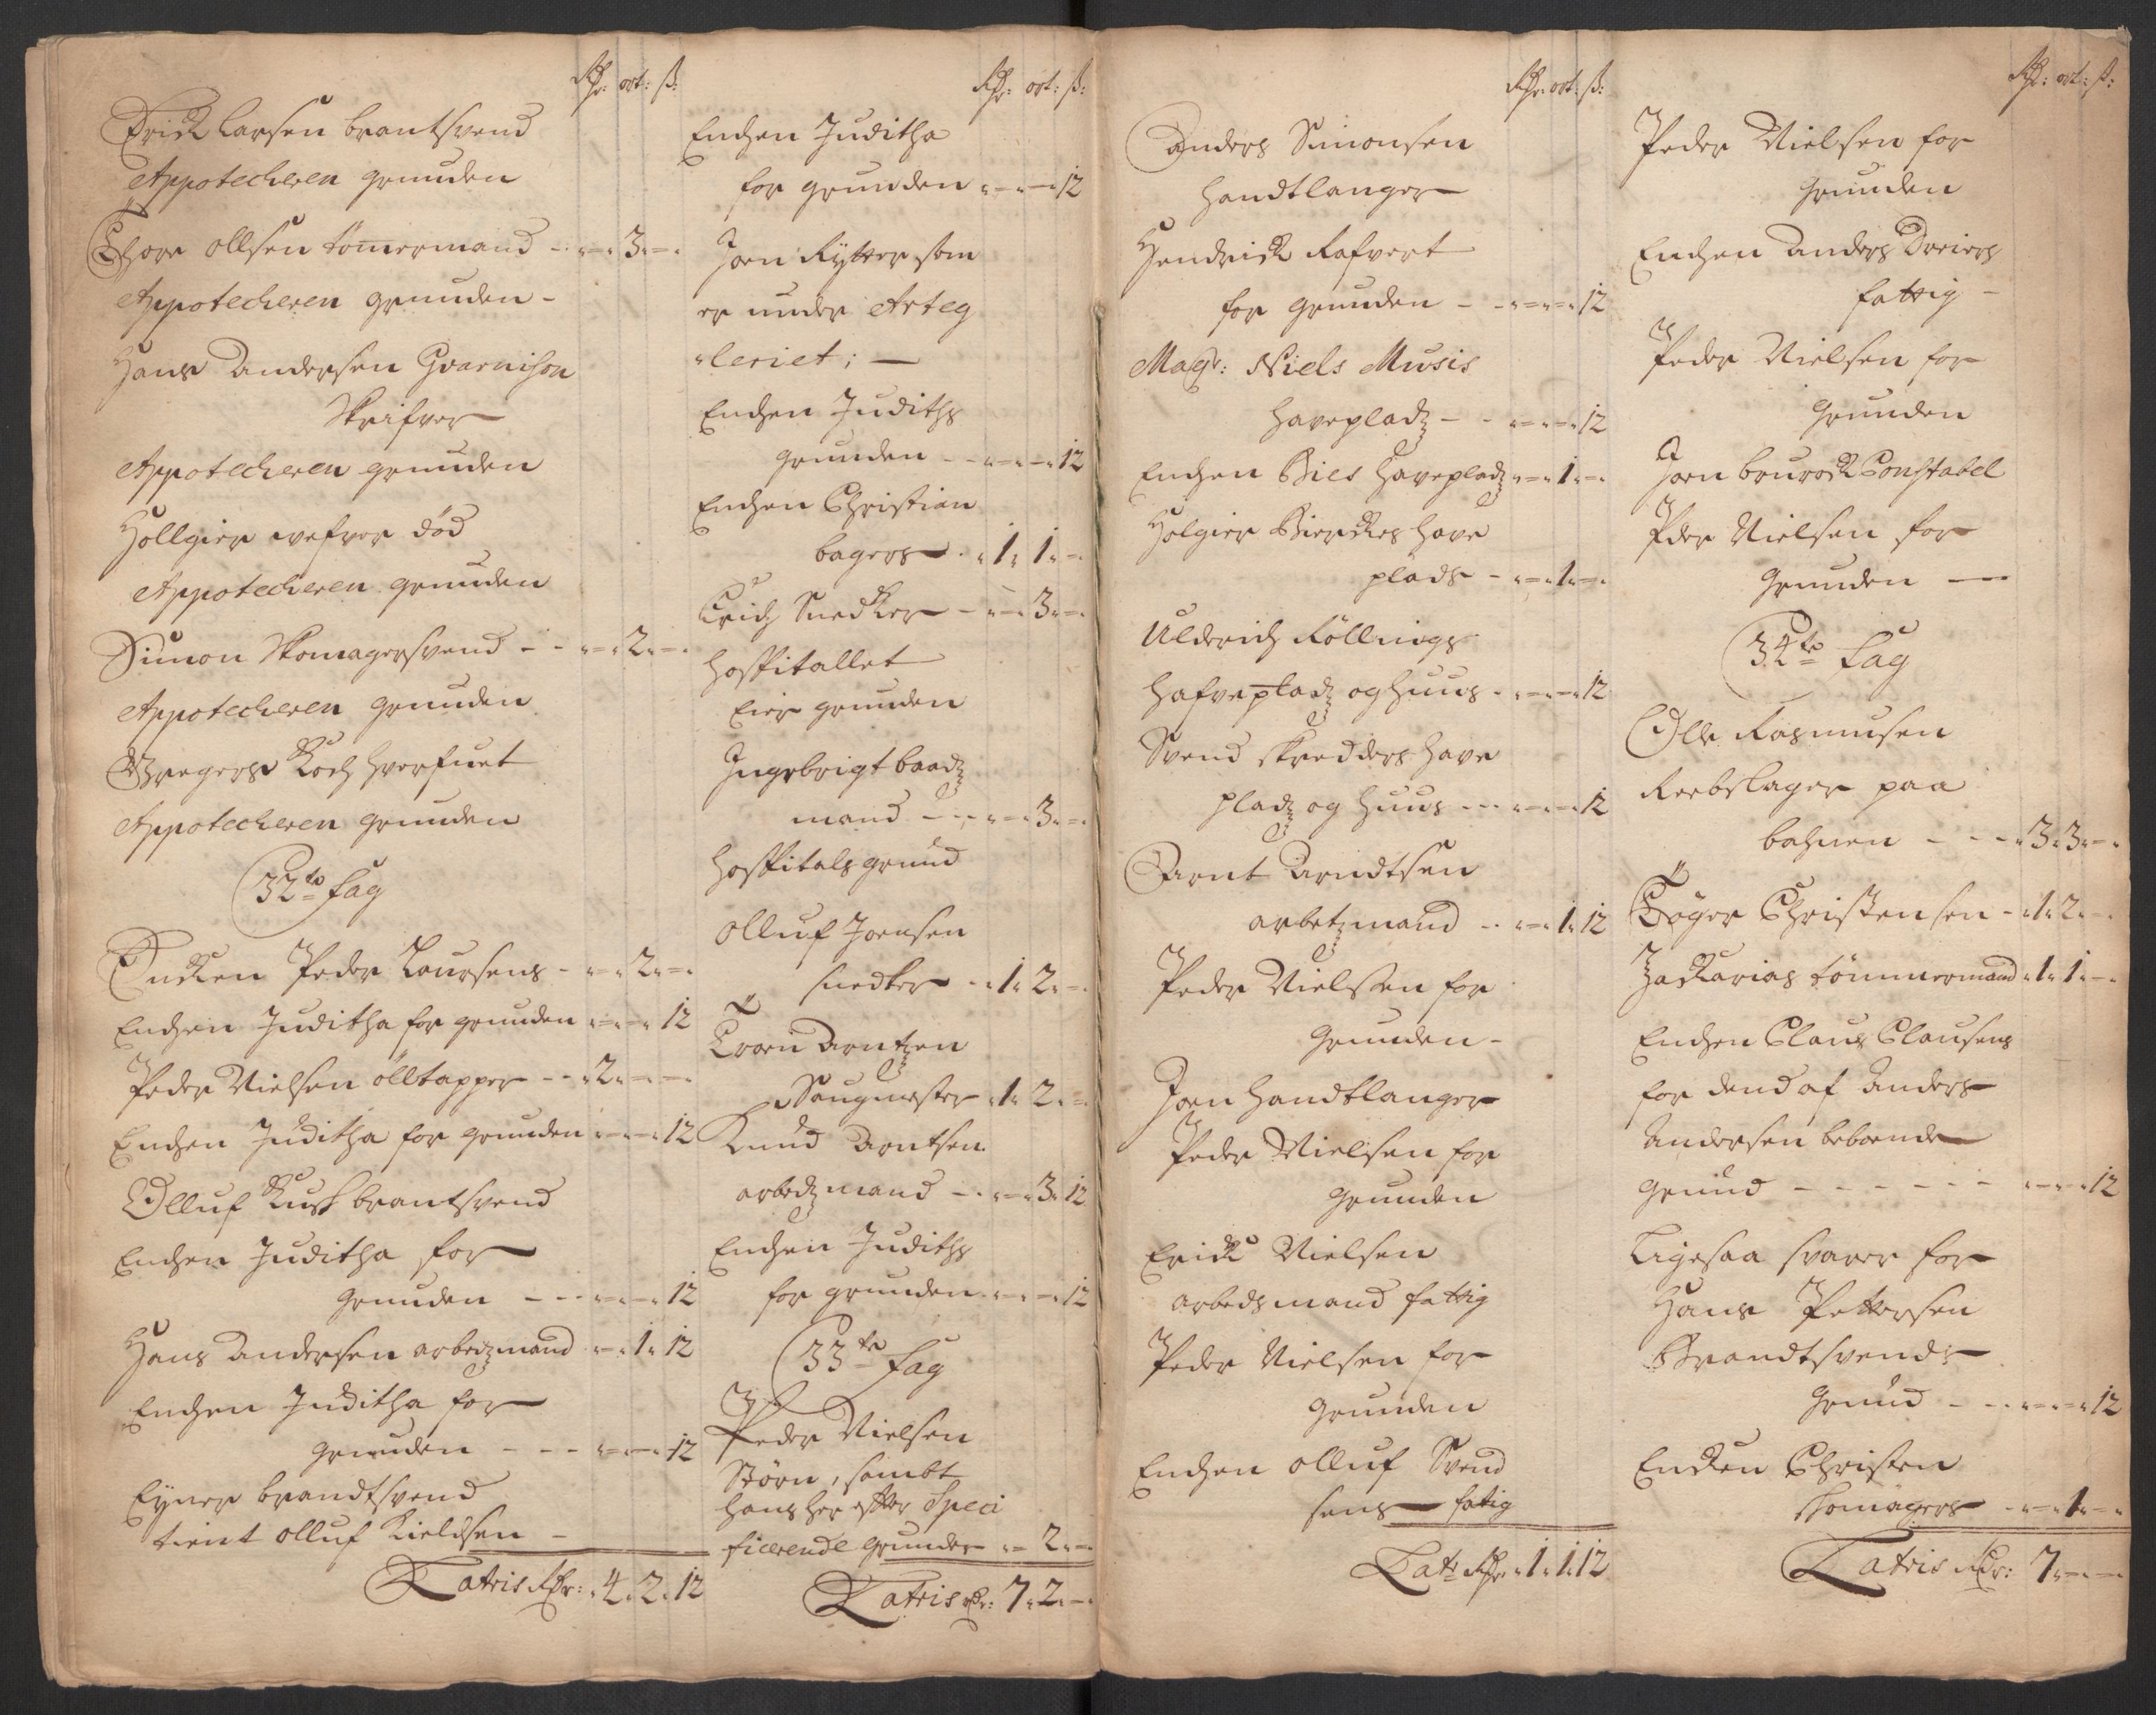 Rdr: ort: ß:
Erick Larsen brantsvend
Appotecheren grunden
Thore Ollsen tömermand - " = " 3 " = "
Appotecheren grunden -
Hans Andersen Gvarnison
Skrifver
Appotecheren grunden
Hollgier vefver död
Appotecheren grunden
Simon Skomagersvend - - " = " 2 " = "
Appotecheren grunden
Gregers Koch
Appotecheren grunden
32te Lag
Encken Peder Laursens - " = " 2 " = "
Enchen Juditha for grunden " = " = " 12
Peder Nielsen ölltapper - - " 2 " = " =
Enchen Juditha for grunden " = " = " 12
Olluf Kusk brantsvend
Enchen Juditha for
grunden - - - " = " = " 12
Hans Andersen arbedzmand " = " 1 " 12
Enchen Juditha for
grunden - - - " = " = " 12
Eyner brandtsvend
tient Olluf Kieldsen -
Latris Rdr: " 4 " 2 " 12
Rdr: ort: ß:
Enchen Juditha
for grunden " = " = " 12
Joen Rytter som
er under Arteg
"leriet; -
Enchen Judiths
grunden - - " = " = " 12
Enchen Christian
bagers - " 1 " 1 " =
Erich Snedker - " = " 3 " = "
Hospitallet
Eier grunden
Ingebrigt baadz
mand - - - " = " 3 " = "
Hospitals grund
Olluf Joensen
snedker - " 1 " 2 " = "
Troen Arntzen
Saugmester " 1 " 2 " =
Knud Arntsen
arbedzmand - - " = " 3 " 12
Enchen Judiths
for grunden " = " = " 12
33te Lag
Peder Nielsen
Störn, sambt
hans her efter Speci
ficerende grunder " = 2 " = "
Latris Rdr: 7 " 2 " = "
Rdr: ort: ß:
Anders Simonsen
Handtlanger
Hendrick Rafvert
for grunden - - " = " = " 12
Magr: Niels Musis
havepladz - - " = " = " 12
Enchen Bies haveplads " = " 1 " = "
Holgier Bierckes have
plads - " = " 1 " = "
Ulderich Röllings
hafvepladz og huus - " = " = " 12
Svend skredders have
pladz og huus - - - " = " = " 12
Arnt Arndtsen
arbetzmand - - " = " 1 " 12
Peder Nielsen for
grunden -
Joen Handtlanger
Peder Nielsen for
grunden
Erick Nielsen
arbedsmand fattig
Peder Nielsen for
grunden
Enchen Olluf Svend
sens fatig
Lats Rdr: " 1 " 1 " 12
Rdr: ort: ß:
Peder Nielsen for
grunden
Enchen Anders Dreiers
fattig -
Peder Nielsen for
grunden
Joen Constabel
Peder Nielsen for
grunden -
34te Lag
Olle Rasmusen
Reebslager paa
bahnen - - - " 3 " 3 " = "
Töger Christensen - " 1 " 2 " = "
Zackarias tömmermand " 1 " 1 " = "
Enchen Claus Clausens
for dend af Anders
Andersen beboende
grund - - - - - - " = " = " 12
Ligesaa svarer for
Hans Pettersen
Brandtsvends
grund - - - " = " = " 12
Encken Christen
skomagers - " = " 1 " = "
Latris Rdr: 7 " = " =